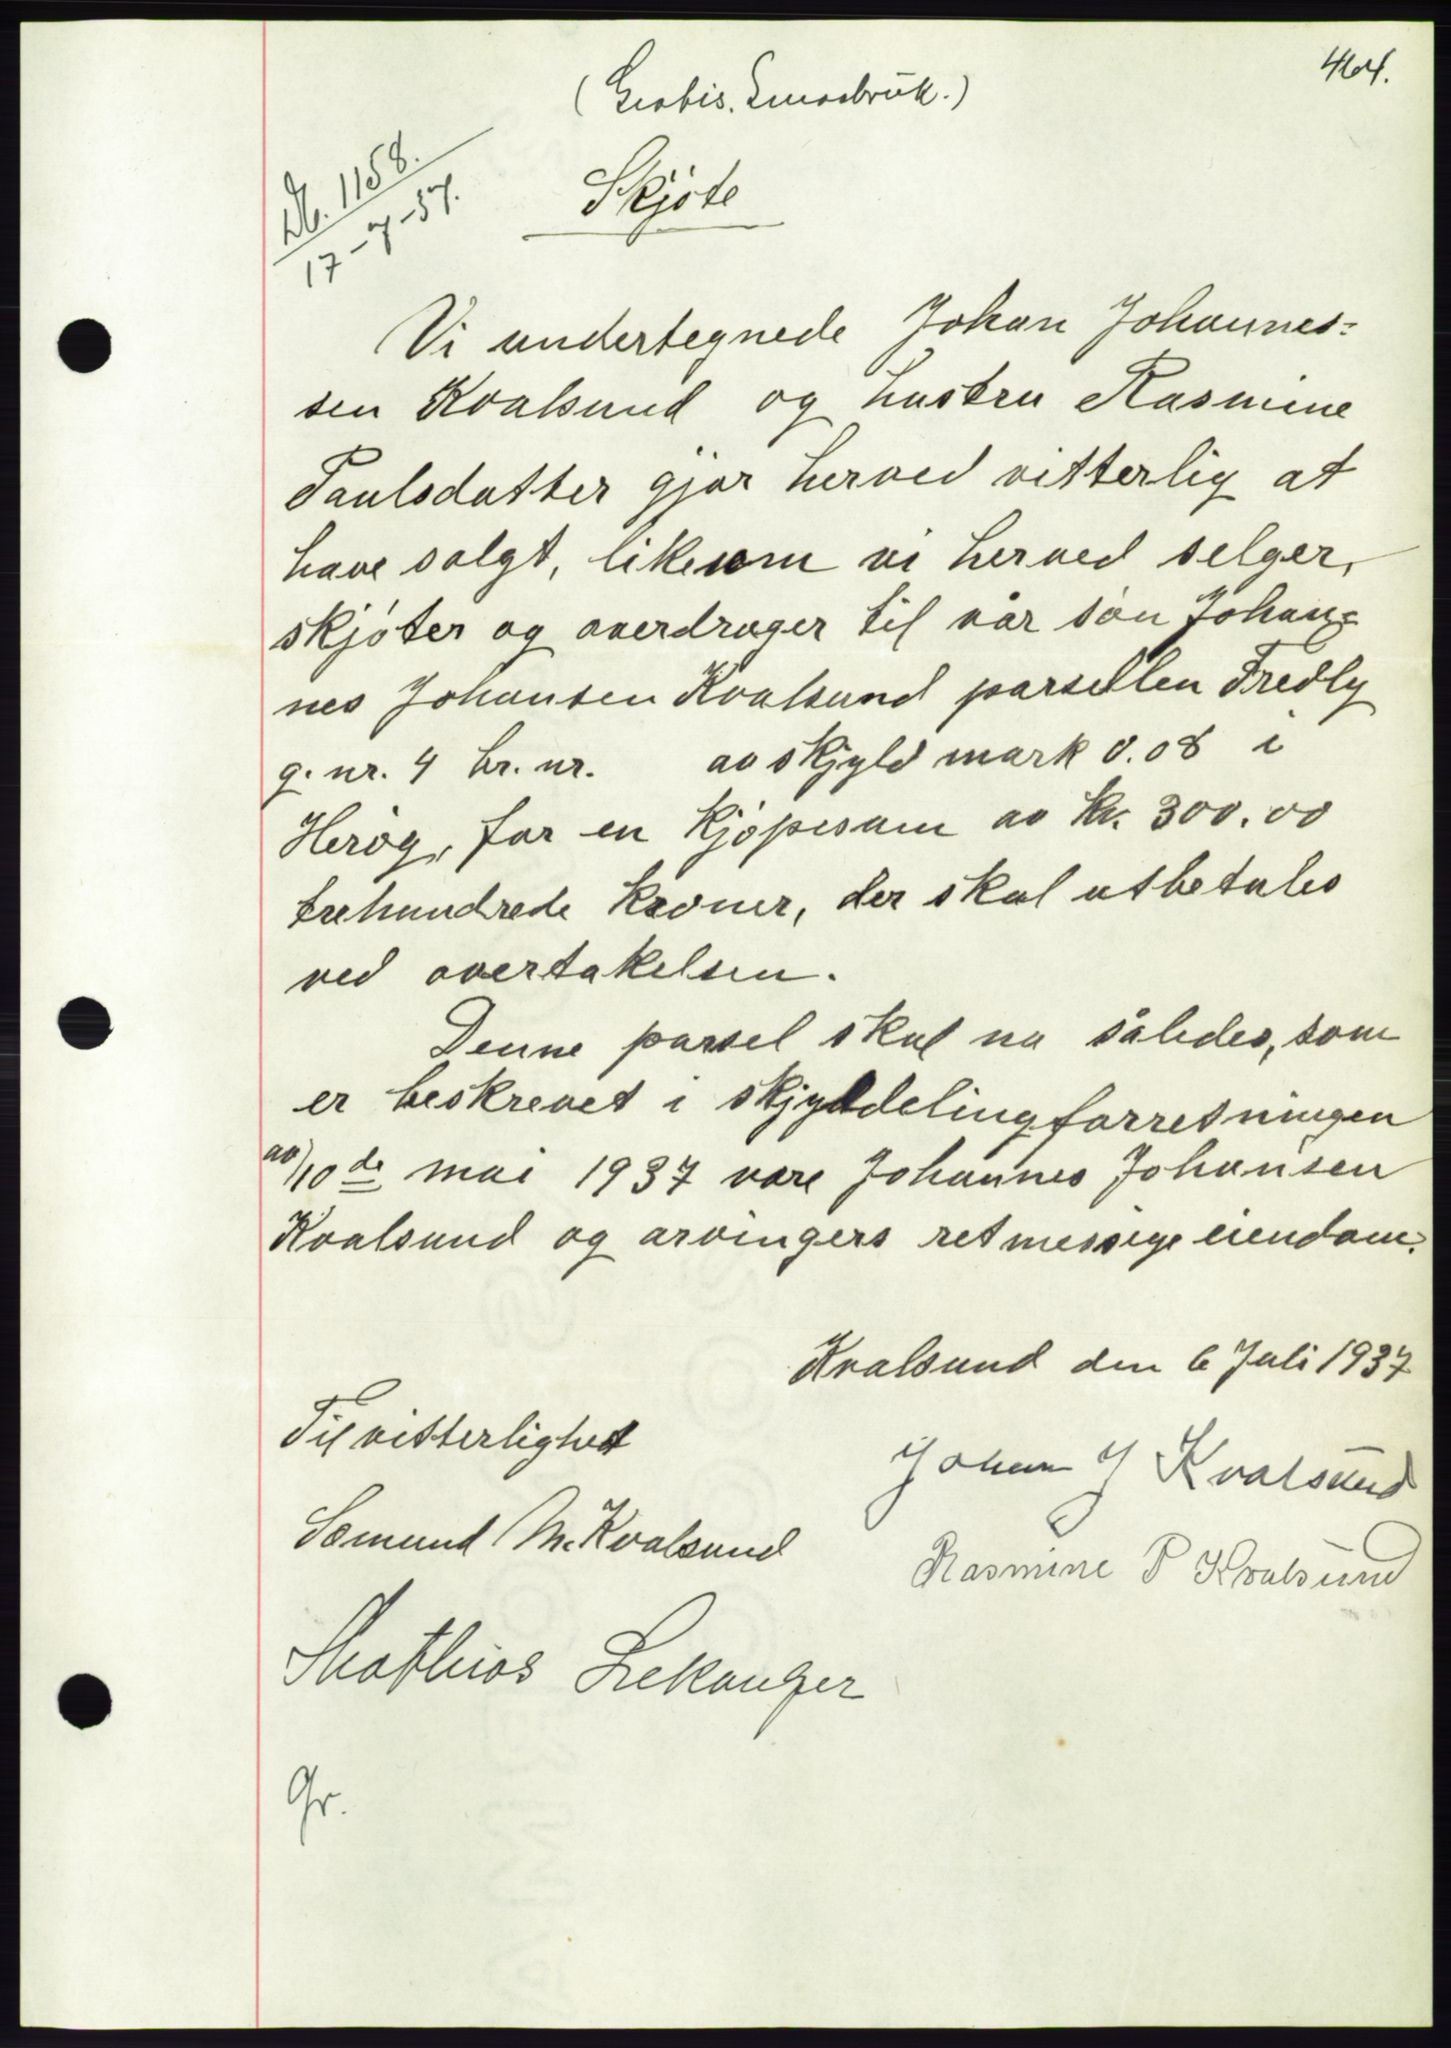 464.
(Gratis. Småbruk.)
Db. 1158.
17-7-37.
Skjøte
Vi undertegnede Johan Johannes=
sen Kvalsund og hustru Rasmine
Paulsdatter gjør herved vitterlig at
have solgt, likesom vi herved selger,
skjøter og overdrager til vår søn Johan=
nes Johansen Kvalsund parsellen Fredly
g. nr. 4 br. nr. av skjyld mark 0.08 i
Herøy, for en kjøpesum av kr. 300.00
trehundrede kroner, der skal utbetales
ved overtakelsen.
Denne parsel skal nu således, som
er beskrevet i skjylddelingforretningen
av/10de mai 1937 være Johannes Johansen
Kvalsund og arvingers retmessige eiendom.
Kvalsund den 6 Juli 1937
Til vitterlighet
Johan J Kvalsund
Sæmund M. Kvalsund
Rasmine P Kvalsund
Mathias Lekanger
Gr.